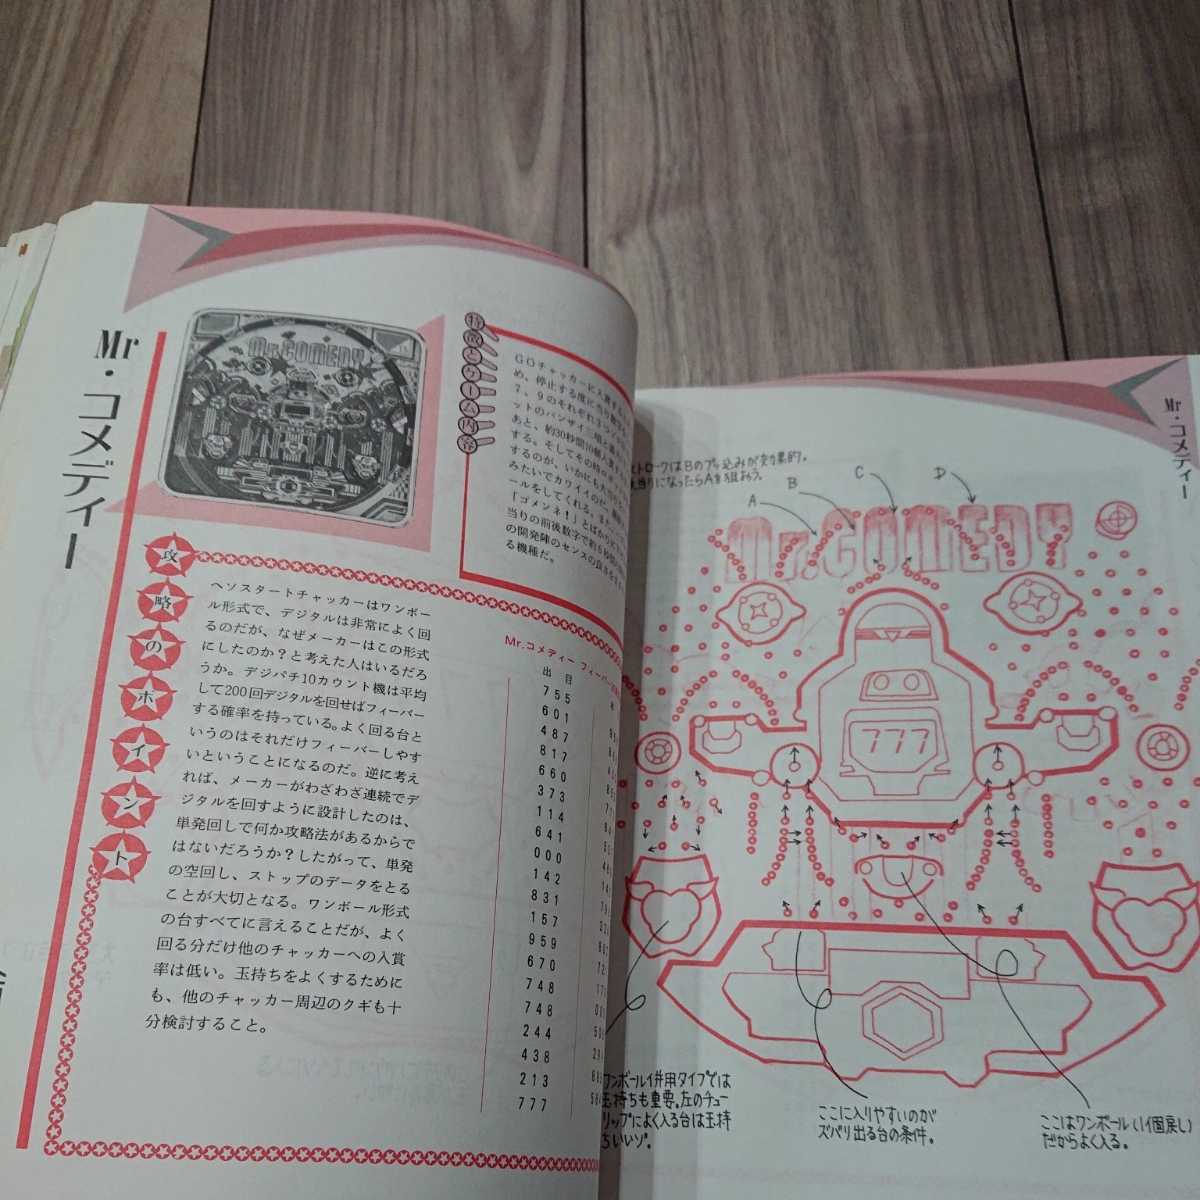 Mr・コメディー
Mr.COMEDY
特徴とゲーム内容
GOチャッカーに入賞する
め、停止する度に当り
7、9のそれぞれ3つ
ットのバンザイ
あと、約30秒間10個
する。そしてその時の
するのが、いかにも
みたいでカワイイのだ。
ールをしてくれる。また
「ゴメンネ!」とばかりに
当りの前後数字で約6秒間
の開発陣のセンスの良さを
る機種だ。
攻略のポイント
ヘソスタートチャッカーはワンボー
ル形式で、デジタルは非常によく回
るのだが、なぜメーカーはこの形式
にしたのか？と考えた人はいるだろ
うか。デジパチ10カウント機は平均
して200回デジタルを回せばフィーバー
する確率を持っている。よく回る台と
いうのはそれだけフィーバーしやす
いということになるのだ。逆に考え
れば、メーカーがわざわざ連続でデ
ジタルを回すように設計したのは、
単発回しで何か攻略法があるからで
はないだろうか？したがって、単発
の空回し、ストップのデータをとる
ことが大切となる。ワンボール形式
の台すべてに言えることだが、よく
回る分だけ他のチャッカーへの入賞
率は低い。玉持ちをよくするために
も、他のチャッカー周辺のクギも十
分検討すること。
Mr.コメディー フィーバー
出 目
755
601
487
817
660
373
114
641
000
142
831
157
959
670
748
748
244
438
213
777
Mr・コメディー
トロークはBのブッ込みが効果的。
当りになったらAを狙おう。
A
B
C
D
Mr.COMEDY
777
ワンボール併用タイプでは
玉持ちも重要。左のチュー
リップによく入る台は玉持
ちいいゾ。
ここに入りやすいのが
ズバリ出る台の条件。
ここはワンボール(1個戻し)
だからよく入る。